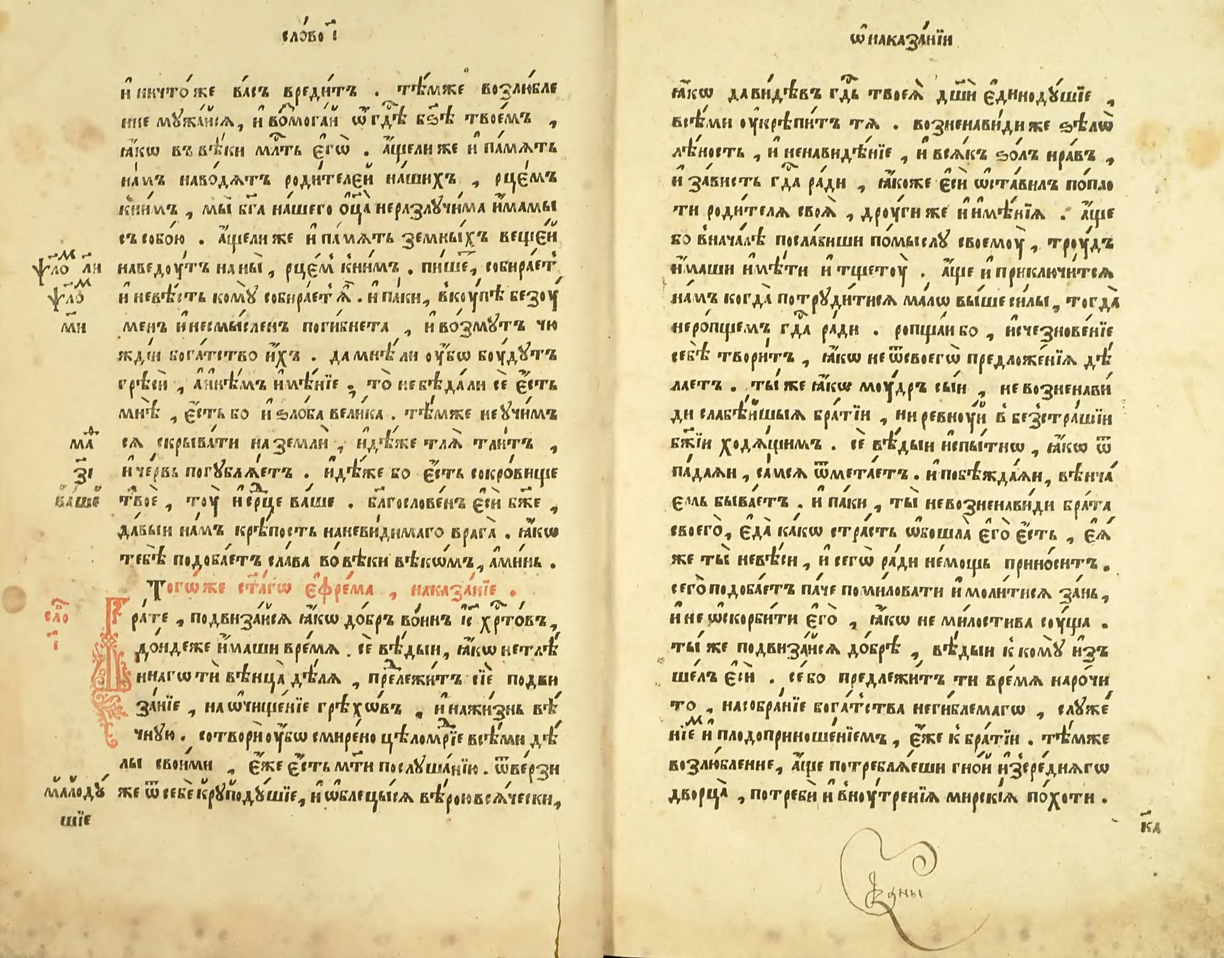 сло́во і҃
и҆ ничто́же ва́съ вреди́тъ . тѣ́мже возлю́бле
нне мужа́йся, и҆ во́змогай ѡ҆ гдⷭ҇ѣ бз҃ѣ твое́мъ ,
ꙗ҆́кѡ въ вѣ́ки млⷭ҇ть є҆гѡ̀ . а҆́щели же и҆ па́мять
на́мъ наво́дятъ роди́телей на́шихъ , рце́мъ
кни́мъ , мы̀ бг҃а на́шего ѻ҆ц҃а̀ неразлучи́ма и҆́мамы
съ собо́ю . а҆́щели же и҆ па́мять земны́хъ веще́й
ѱало́м ли
наведꙋ́тъ на ны̀ , рце́мъ кни́мъ . пи́ше, собира́етъ
ѱало́м
и҆ невѣ́сть комꙋ̀ собира́етъ ѧ҆̀ . и҆ па́ки , вкꙋ́пѣ безꙋ́
ми
менъ и҆ несмы́сленъ поги́бнета , и҆ во́змутъ чю
жді́и бога́тство и҆́хъ . да мнѣ́ ли ᲂу҆́бѡ бꙋ́дутъ
грѣсѝ , а҆ и҆нѣ́мъ и҆мѣ́нїе , то̀ не бѣда́ ли сѐ є҆́сть
мнѣ̀ , є҆́сть бо и҆ ѕло́ба вели́ка . тѣ́мже не ᲂу҆чи́мъ
маⷴ҇
ся скрыва́ти на землѝ , и҆дѣ́же тля̀ тли́тъ ,
зі
и҆ че́рвь погубля́етъ . и҆дѣ́же бо є҆́сть сокро́вище
ва́ше
твоѐ , тꙋ̀ и҆ срⷣце ва́ше . благослове́нъ є҆сѝ бж҃е ,
да́выи на́мъ крѣ́пость на неви́димаго врага̀ . ꙗ҆́кѡ
тебѣ̀ подоба́етъ сла́ва во вѣ́ки вѣкѡ́мъ , а҆ми́нь .
Тогѡ́же ст҃а́гѡ є҆фре́ма , наказа́нїе .
сло́
і҃
Бра́те , подвиза́йся ꙗ҆́кѡ до́бръ во́инъ іс҃ хрⷭ҇то́въ ,
до́ндеже и҆́маши вре́мя . сѐ вѣ́дыи, ꙗ҆́кѡ нетлѣ́
ннагѡ ти вѣнца̀ дѣ́ля , предлежи́тъ сїѐ подви
за́нїе , на ѡ҆чище́нїе грѣхѡ́въ , и҆ на жи́знь вѣ́
чную . сотвори̂ ᲂу҆́бѡ смире́но цѣломрⷣїе всѣ́ми дѣ́
лы свои́ми , є҆́же є҆́сть мт҃и послуша́нїю . ѿве́рзи
малодꙋ́
же ѿ себѐ крꙋподу́шїе, и҆ ѡ҆блецы́ся вѣ́рою вся́чески,
шїе
ѡ҆ наказа́нїи
ꙗ҆́кѡ да ви́дѣвъ гдⷭ҇ь твоея̀ дш҃и є҆динодꙋ́шїе ,
всѣ́ми ᲂу҆крѣпи́тъ тя . возненави́ди же ѕѣлѡ̀
лѣ́ность , и҆ ненави́дѣнїе , и҆ вся́къ ѕо́лъ нра́въ ,
и҆ за́висть гдⷭ҇а ра́ди , ꙗ҆́коже є҆сѝ ѡ҆ста́вилъ по пло
ти роди́теля своя̀ , дрꙋ́ги же и҆ и҆мѣ́нїя . а҆́ще
бо внача́лѣ посла́биши по́мыслꙋ своемꙋ̀ , трꙋ́дъ
и҆́маши и҆мѣ́ти и҆ тщетꙋ̀ . а҆́ще и҆ приключи́тся
на́мъ когда̀ потруди́тися ма́лѡ вы́ше си́лы , тогда̀
не ро́пщемъ гдⷭ҇а ра́ди . ропща́и бо , и҆счезнове́нїе
себѣ̀ твори́тъ , ꙗ҆́кѡ не ѿ своегѡ̀ предложе́нїя дѣ́
лаетъ . ты́ же ꙗ҆́кѡ мꙋ́дръ сы́и , не возненави́
ди слабѣ́йшыя бра́тїи , ни ревнꙋ́й в безстра́шїи
бж҃їи ходя́щимъ . сѐ вѣ́дыи и҆спы́тнѡ , ꙗ҆́кѡ ѿ
па́даяи , са́мся ѿмета́етъ . и҆ побѣжда́яи, вѣнча́
емь быва́етъ . и҆ па́ки , ты̀ не возненави́ди бра́та
своего̀ , є҆да̀ ка́кѡ стра́сть ѡ҆бошла̀ є҆го̀ є҆́сть , є҆я́
же ты̀ не вѣ́си , и҆ сегѡ̀ ра́ди не́мощь прино́ситъ .
сего̀ подоба́етъ па́че поми́ловати и҆ моли́тися за́нь ,
и҆ не ѡ҆скорби́ти є҆го̀ , ꙗ҆́кѡ не ми́лостива сꙋ́ща .
ты́ же подвиза́йся до́брѣ , вѣ́дыи к комꙋ̀ и҆зъ
ше́лъ є҆сѝ . се́ бо предлежи́тъ ти вре́мя нарочи
то , на собра́нїе бога́тства неги́блемагѡ , слꙋже́
нїем и҆ плодоприноше́нїемъ , є҆́же к бра́тїи . тѣ́мже
возлю́бленне , а҆́ще потребля́еши гно́й и҆зъ пере́днягѡ
дворца̀ , потребѝ и҆ внꙋ́треннїя мирскі́я по́хоти .
к҃а